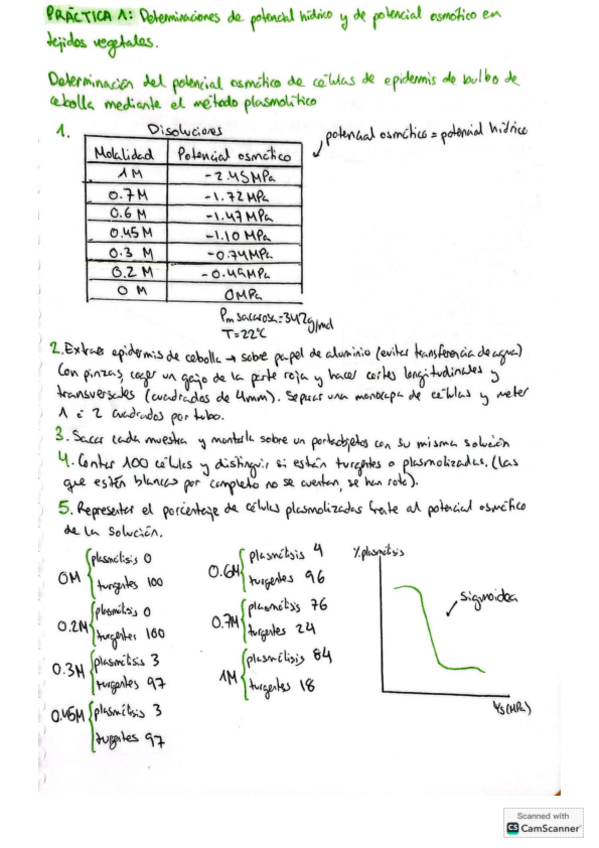 PRÁCTICA 1: Determinaciones de potencial hídrico y de potencial osmótico en
tejidos vegetales.
Determinación del potencial osmótico de células de epidermis de bulbo de
cebolla mediante el método plasmolítico
1.
Disoluciones
potencial osmótico = potencial hídrico
Molalidad Potencial osmótico
1 M -2.45 MPa
0.7 M -1.72 MPa
0.6 M -1.47 MPa
0.45 M -1.10 MPa
0.3 M -0.74 MPa
0.2 M -0.49 MPa
0 M 0 MPa
Pm sacarosa = 342 g/mol
T = 22ºC
2. Extraer epidermis de cebolla → sobre papel de aluminio (evitar transferencia de agua)
Con pinzas, coger un gajo de la parte roja y hacer cortes longitudinales y
transversales (cuadrados de 4mm). Separar una monocapa de células y meter
1 ó 2 cuadrados por tubo.
3. Sacar cada muestra y montarla sobre un portaobjetos con su misma solución
4. Contar 100 células y distinguir si están turgentes o plasmolizadas. (las
que estén blancas por completo no se cuentan, se han roto).
5. Representar el porcentaje de células plasmolizadas frente al potencial osmótico
de la solución.
0M plasmólisis 0
turgentes 100
0.2M plasmólisis 0
turgentes 100
0.3M plasmólisis 3
turgentes 97
0.45M plasmólisis 3
turgentes 97
0.6M plasmólisis 4
turgentes 96
0.7M plasmólisis 76
turgentes 24
1M plasmólisis 84
turgentes 18
% plasmólisis
sigmoidea
Ψs (MPa)
Scanned with
CS CamScanner